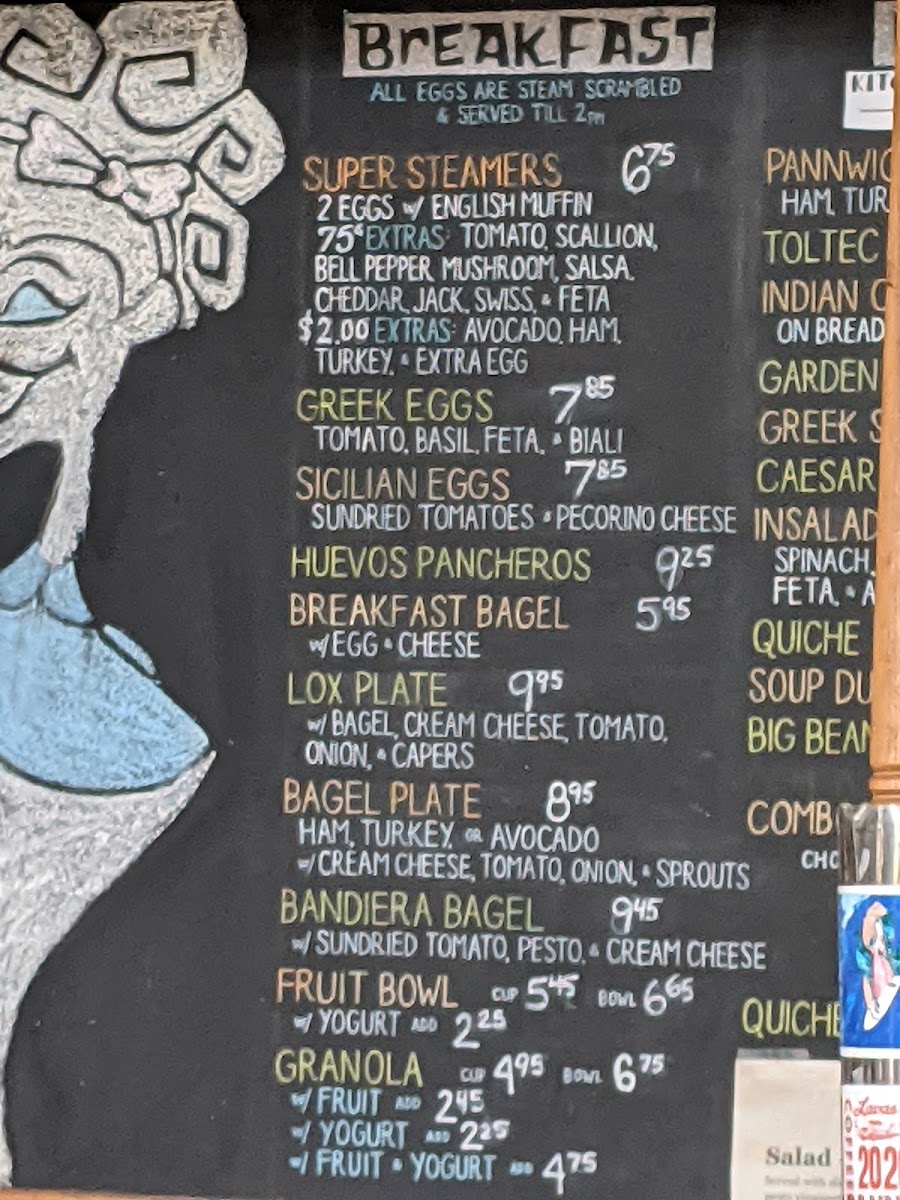 BREAKFAST
ALL EGGS ARE STEAM SCRAMBLED
& SERVED TILL 2PM
SUPER STEAMERS 6.75
2 EGGS W/ ENGLISH MUFFIN
75¢ EXTRAS: TOMATO, SCALLION,
BELL PEPPER, MUSHROOM, SALSA,
CHEDDAR, JACK, SWISS, & FETA
$2.00 EXTRAS: AVOCADO, HAM,
TURKEY, & EXTRA EGG
GREEK EGGS 7 85
TOMATO, BASIL, FETA, & BIALI
SICILIAN EGGS 7 85
SUNDRIED TOMATOES & PECORINO CHEESE
HUEVOS PANCHEROS 9 25
BREAKFAST BAGEL 5 95
W/ EGG & CHEESE
LOX PLATE 9 95
W/ BAGEL, CREAM CHEESE, TOMATO,
ONION, & CAPERS
BAGEL PLATE 8 95
HAM, TURKEY, OR AVOCADO
W/ CREAM CHEESE, TOMATO, ONION, & SPROUTS
BANDIERA BAGEL 9 45
W/ SUNDRIED TOMATO, PESTO, & CREAM CHEESE
FRUIT BOWL CUP 5 45 BOWL 6 65
W/ YOGURT ADD 2 25
GRANOLA CUP 4 95 BOWL 6 75
W/ FRUIT ADD 2 45
W/ YOGURT ADD 2 25
W/ FRUIT & YOGURT ADD 4 75
KITC
PANNWIC
HAM, TUR
TOLTEC
INDIAN C
ON BREAD
GARDEN
GREEK S
CAESAR
INSALAD
SPINACH,
FETA, & A
QUICHE
SOUP DU
BIG BEAN
COMB
CHO
QUICHE
Salad
202